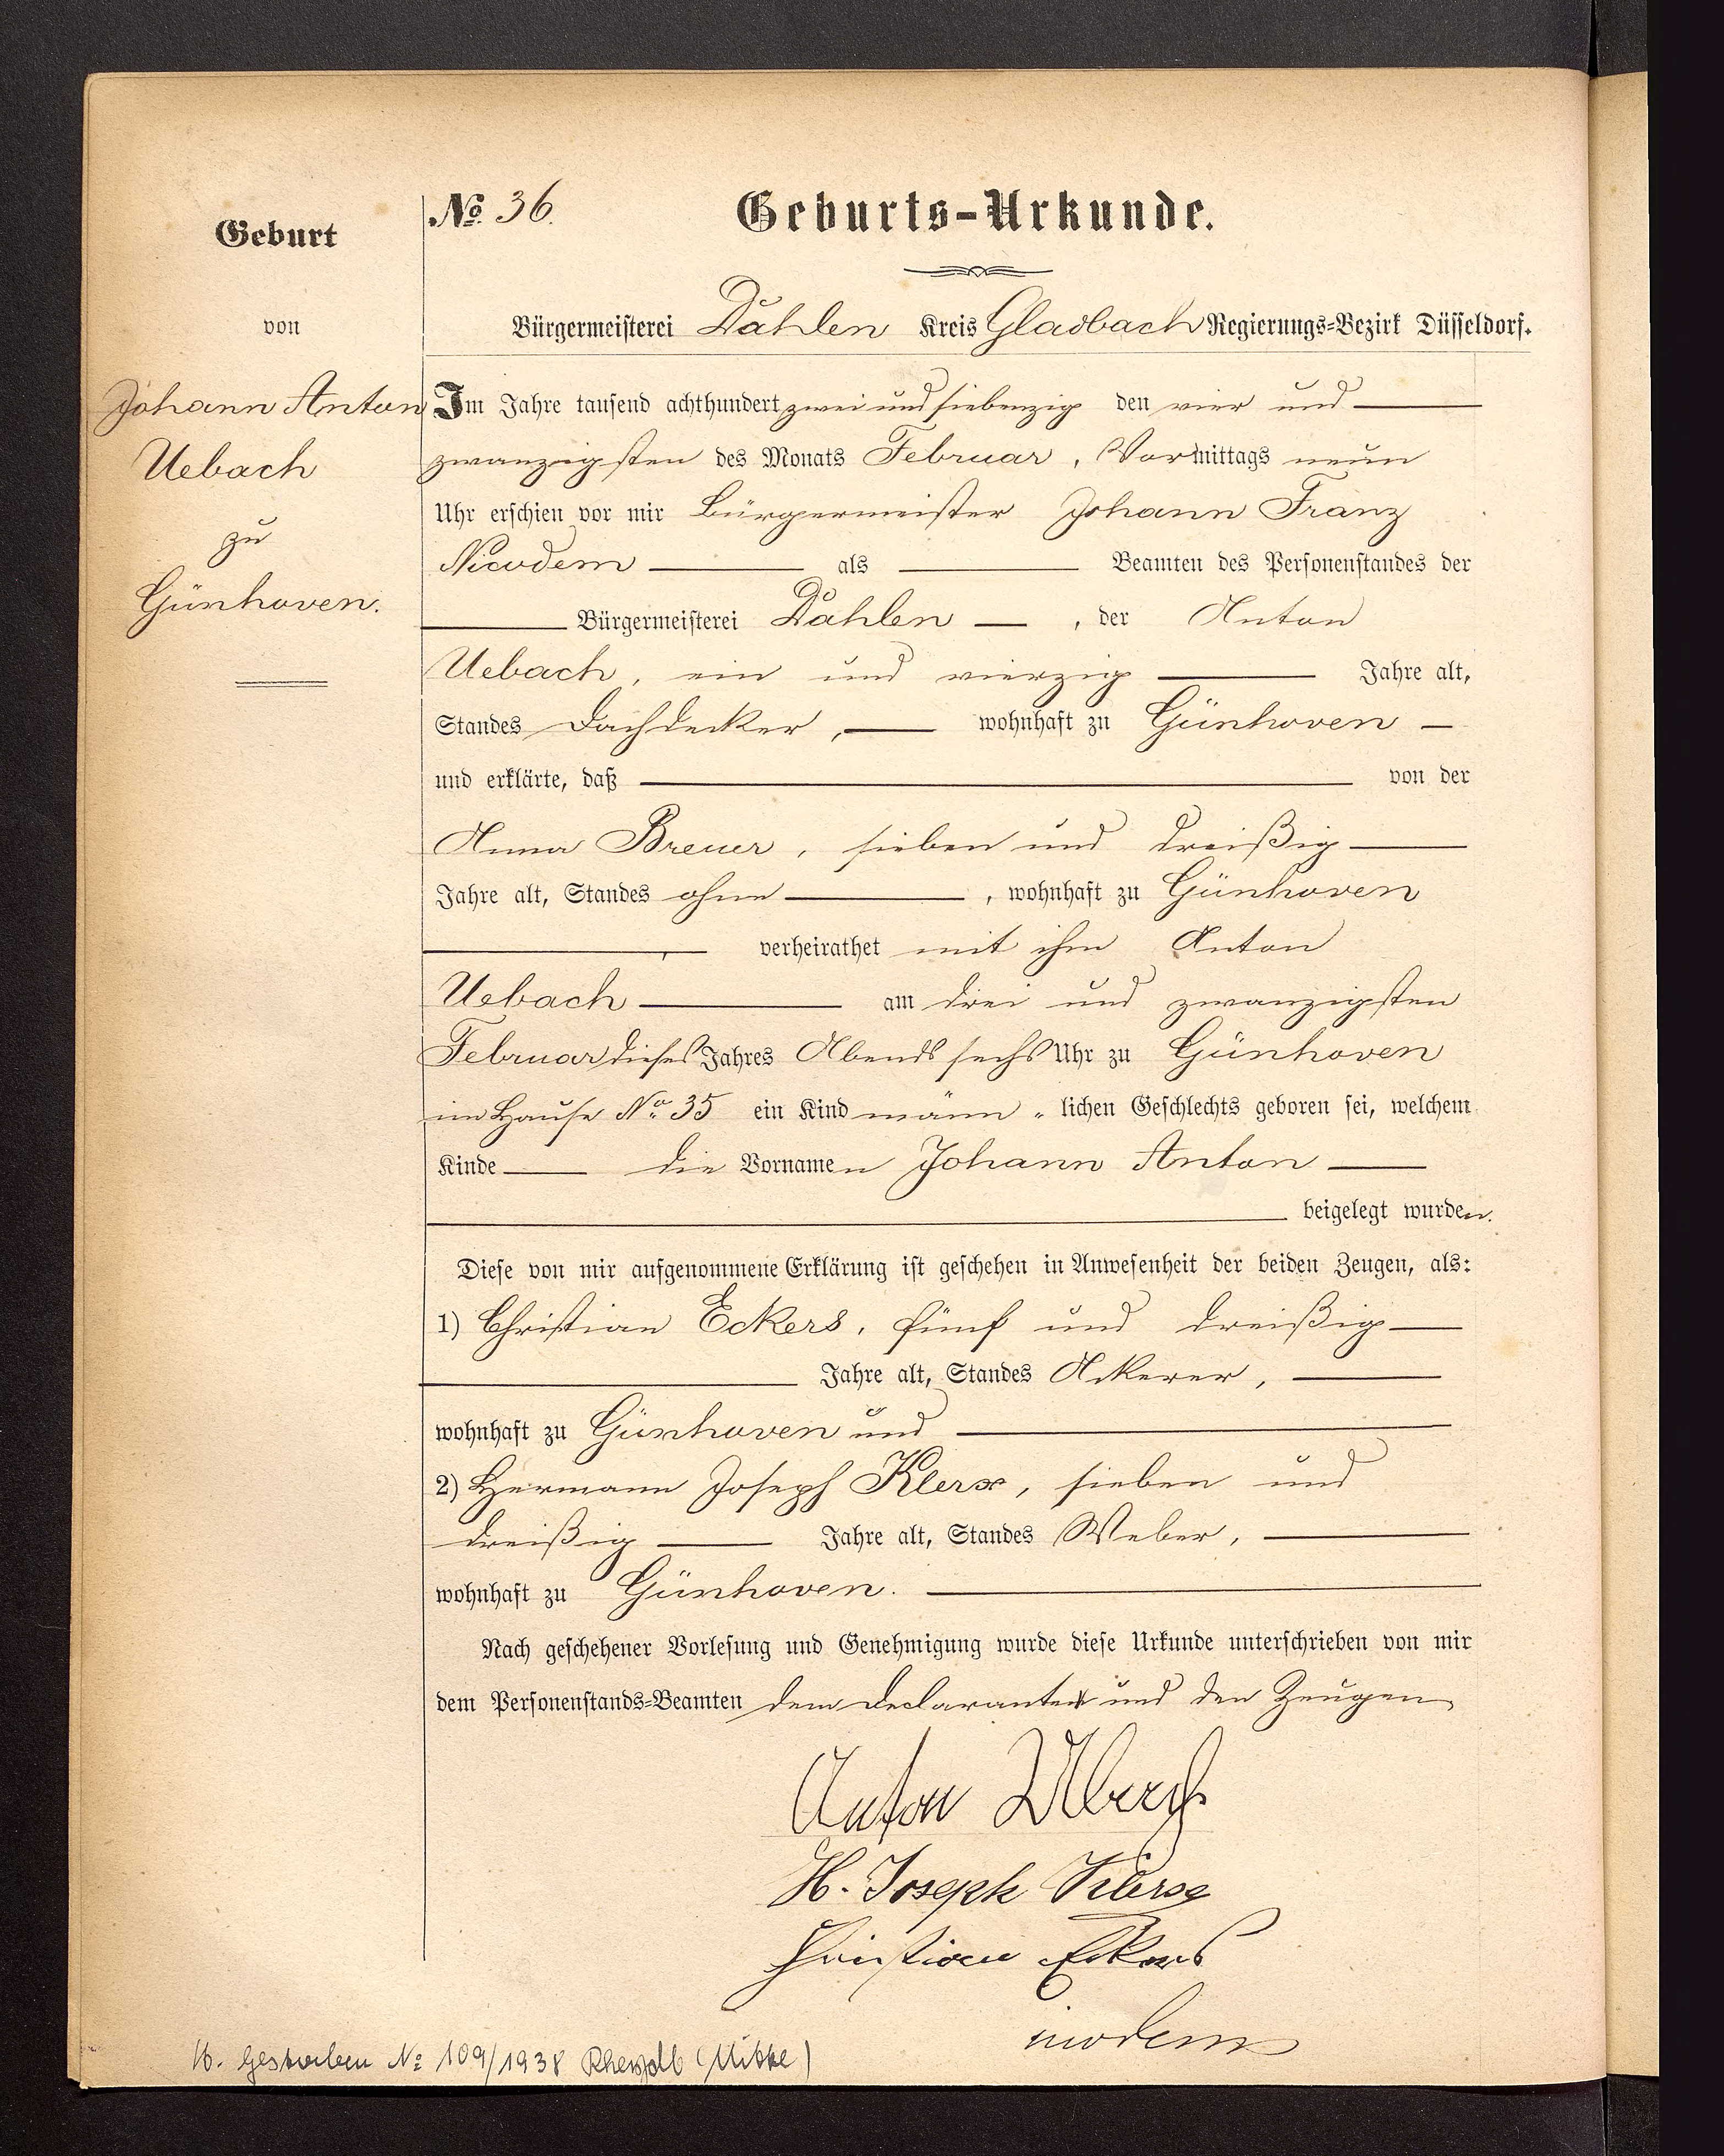 Geburt
von
Johann Anton
Uebach
zu
Günhoven.
No 36.
Geburts-Urkunde.
Bürgermeisterei Dahlen Kreis Gladbach Regierungs-Bezirk Düsseldorf.
Im Jahre tausend achthundert zwei und siebenzig den vier und
zwanzigsten des Monats Februar, Vormittags neun
Uhr erschien vor mir Bürgermeister Johann Franz
Nicodem als Beamten des Personenstandes der
Bürgermeisterei Dahlen, der Anton
Uebach, ein und vierzig Jahre alt,
Standes Dachdecker, wohnhaft zu Günhoven
und erklärte, daß von der
Anna Breuer, sieben und dreißig
Jahre alt, Standes ohne, wohnhaft zu Günhoven
, verheirathet mit ihm Anton
Uebach am drei und zwanzigsten
Februar dieses Jahres Abends sechs Uhr zu Günhoven
im Hause No 35 ein Kind männ- lichen Geschlechts geboren sei, welchem
Kinde die Vornamen Johann Anton
beigelegt wurden.
Diese von mir aufgenommene Erklärung ist geschehen in Anwesenheit der beiden Zeugen, als:
1) Christian Eckers, fünf und dreißig
Jahre alt, Standes Ackerer,
wohnhaft zu Günhoven und
2) Hermann Joseph Klerx, sieben und
dreißig Jahre alt, Standes Weber,
wohnhaft zu Günhoven.
Nach geschehener Vorlesung und Genehmigung wurde diese Urkunde unterschrieben von mir
dem Personenstands-Beamten dem Declaranten und den Zeugen
Anton
H. Joseph Klerx
Christian Eckers
Nicodem
Gestorben No 109/1938